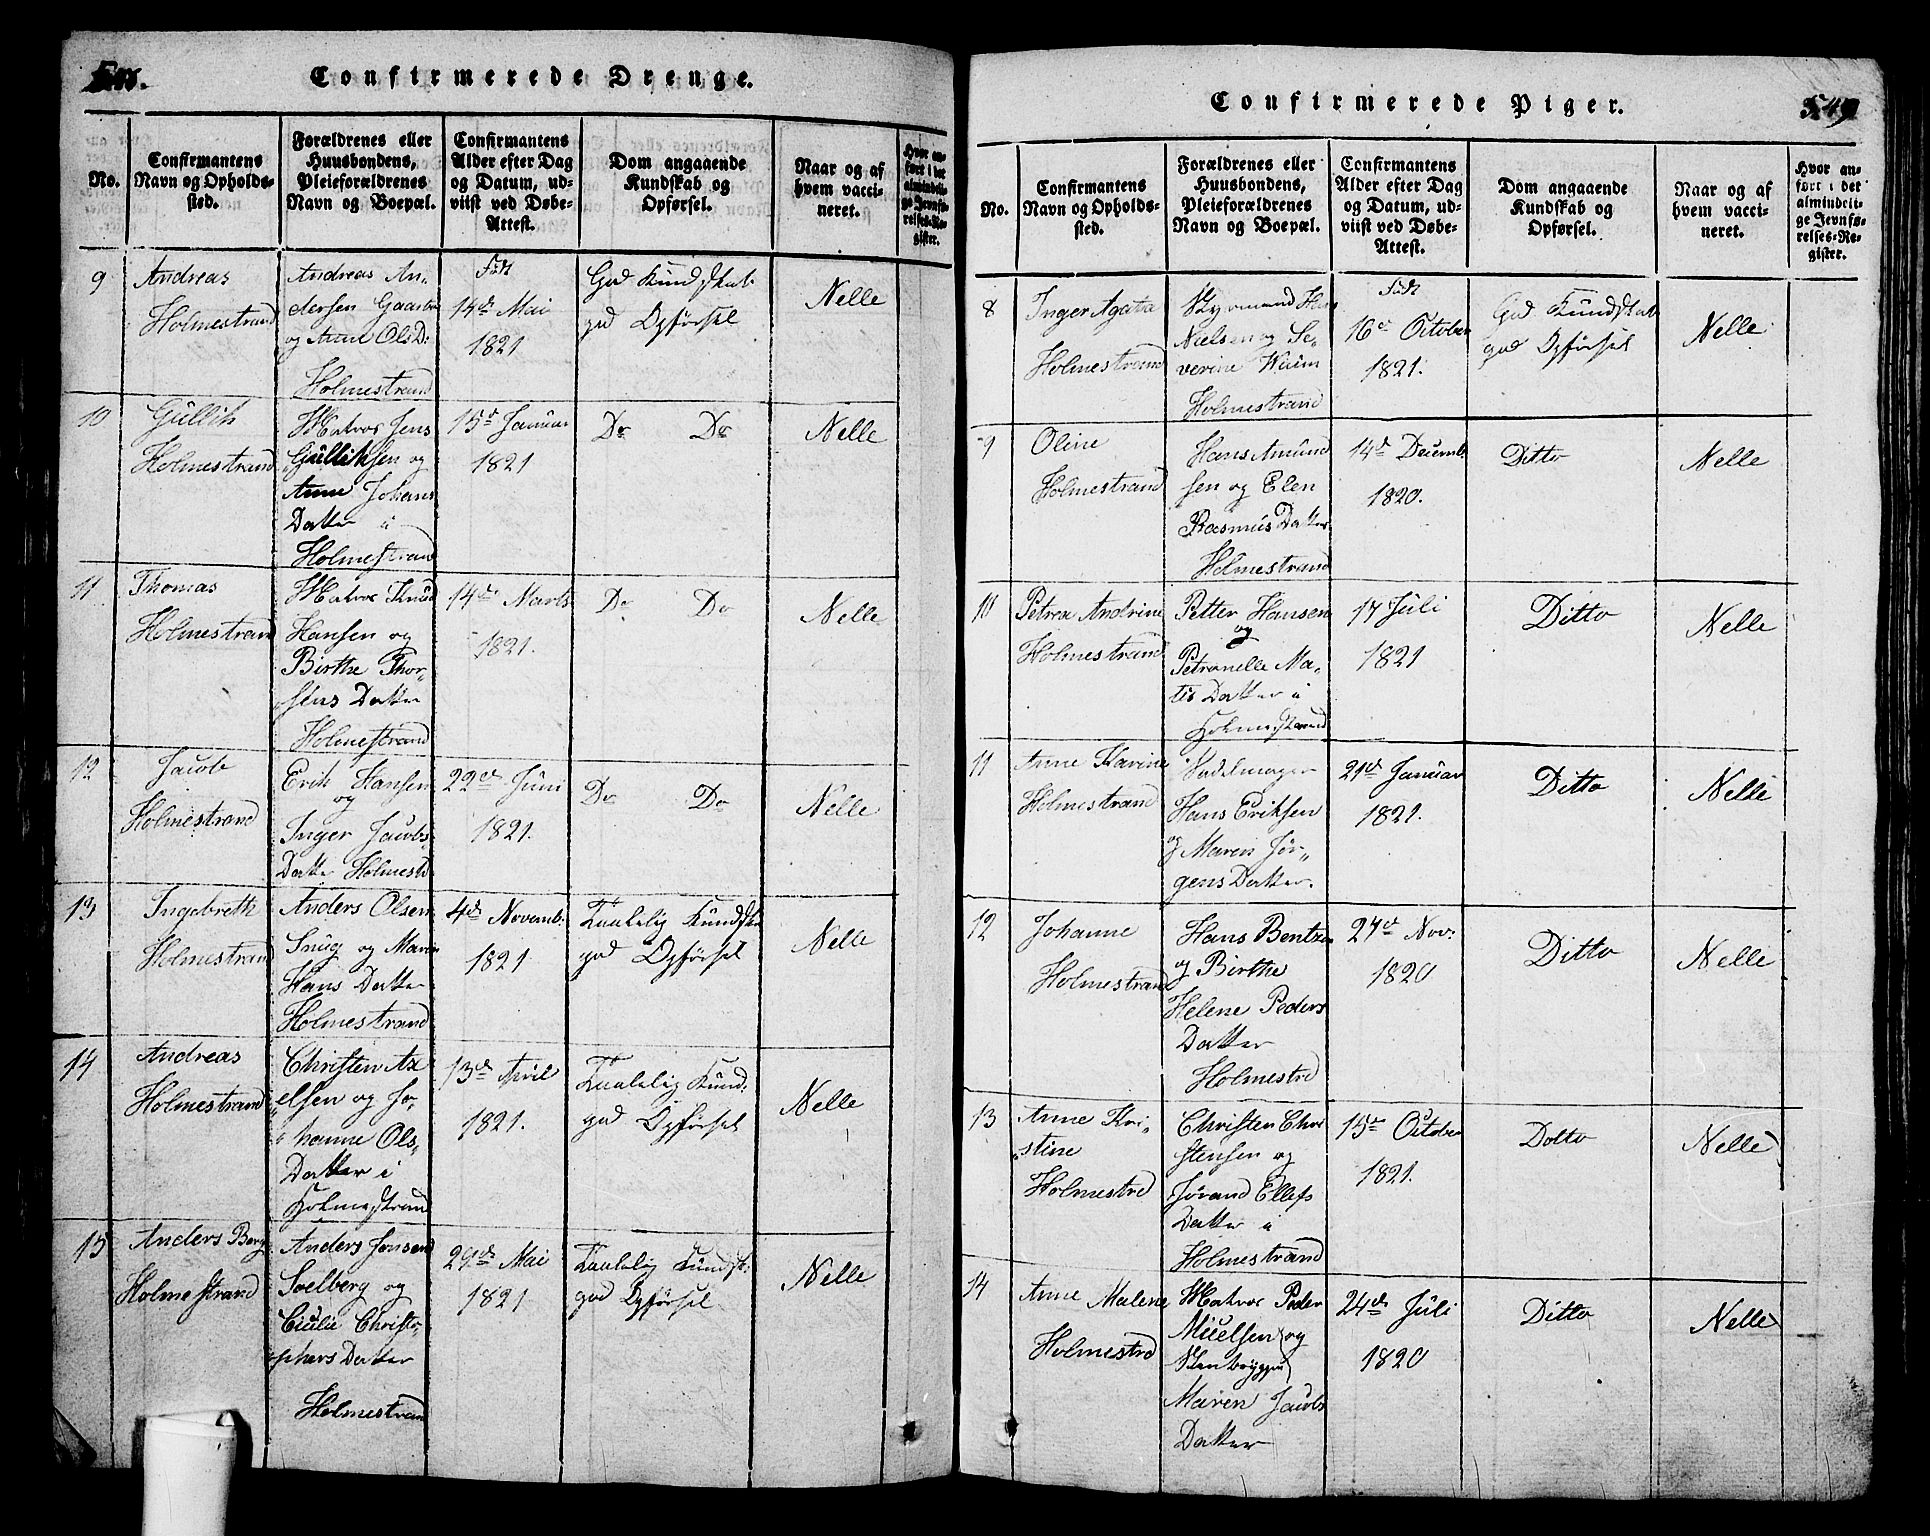 Confirmerede Drenge.
No.
Confirmantens
Navn og Opholds-
sted.
Forældrenes eller
Huusbondens,
Pleieforældrenes
Navn og Boepæl.
Confirmantens
Alder efter Dag
og Datum, ud-
viist ved Døbe-
Attest.
Dom angaaende
Kundskab og
Opførsel.
Naar og af
hvem vacci-
neret.
Hvor an-
ført i det
almindeli-
ge Jevnfø-
relses-Re-
gister.
9
Andreas
Holmestrand
Andreas An-
dersen
og Anne OlsD:
Holmestrand
Født
14de Mai
1821
God Kundskab
god Opførsel
Nelle
10
Gullik
Holmestrand
Matros Jens
Gulliksen og
Anne Johans
Datter i
Holmestrand
15de Januar
1821
Do Do
Nelle
11
Thomas
Holmestrand
Matros Knud
Hansen og
Birthe Thor-
sens Datter
Holmestrand
14de Marts
1821.
Do Do
Nelle
12
Jacob
Holmestrand
Erik Hansen
og
Inger Jacobs
Datter Holmestd
22de Juni
1821.
Do Do
Nelle
13
Ingebreth
Holmestrand
Anders Olsen
Snug og Maren
Hans Datter
Holmestrand
4de Novemb:
1821
Taalelig Kundsk
god Opførsel
Nelle
14
Andreas
Holmestrand
Christen Ax
elsen og Jo-
hanne Ols-
Datter i
Holmestrand
13de April
1821.
Taalelig Kund.
god Opførsel
Nelle
15
Anders Berg
Holmestrand
Anders Jensen
Solberg og
Cicilie Christo-
phers Datter
Holmestrand
29de Mai
1821
Taalelig Kundsk:
god Opførsel
Nelle
Confirmerede Piger.
549
No.
Confirmantens
Navn og Opholds-
sted.
Forældrenes eller
Huusbondens,
Pleieforældrenes
Navn og Boepæl.
Confirmantens
Alder efter Dag
og Datum, ud-
viist ved Døbe-
Attest.
Dom angaaende
Kundskab og
Opførsel.
Naar og af
hvem vacci-
neret.
Hvor an-
ført i det
almindeli-
ge Jevnfø-
relses-Re-
gister.
8
Inger Agata
Holmestrand
Styrmand Hans
Nielsen og Se-
verine
Holmestrand
Født
16de October
1821.
God Kundskab
god Opførsel
Nelle
9
Oline
Holmestrand
Hans Amund
sen og Elen
Rasmus Datter
Holmestrand
14de Decemb.
1820.
Ditto
Nelle
10
Petrea Andrine
Holmestrand
Petter Hansen
og
Petronelle Ma-
tis Datter i
Holmestrand
17 Juli
1821
Ditto
Nelle
11
Anne Karine
Holmestrand
Sadelmager
Hans Eriksen
og Maren Jør-
gens Datter.
21de Januar
1821.
Ditto
Nelle
12
Johanne
Holmestrand
Hans Bentzen
og Birthe
Helene Peders
Datter
Holmestrd
27de Nov:
1820
Ditto
Nelle
13
Anne Kri-
stine
Holmestrd
Christen Chri
stensen og
Jørand Ellefs
Datter i
Holmestrand
15de October
1821.
Dotto
Nelle
14
Anne Malene
Holmestrd
Matros Peder
Micelsen og
Stenbryggen
Maren Jacobs
Datter
24de Juli
1820
Ditto
Nelle